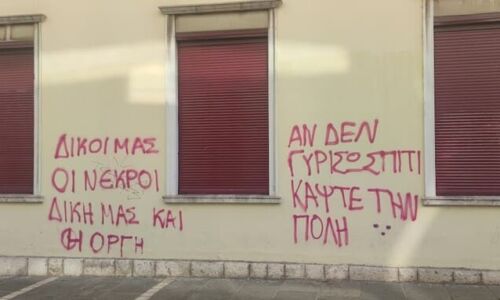 ΔΙΚΟΙ ΜΑΣ
ΟΙ ΝΕΚΡΟΙ
ΔΙΚΗ ΜΑΣ ΚΑΙ
Η ΟΡΓΗ
ΑΝ ΔΕΝ
ΓΥΡΙΣΩ ΣΠΙΤΙ
ΚΑΨΤΕ ΤΗΝ
ΠΟΛΗ